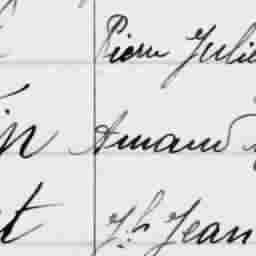 Pierre Julie
Amand
Jh Jean